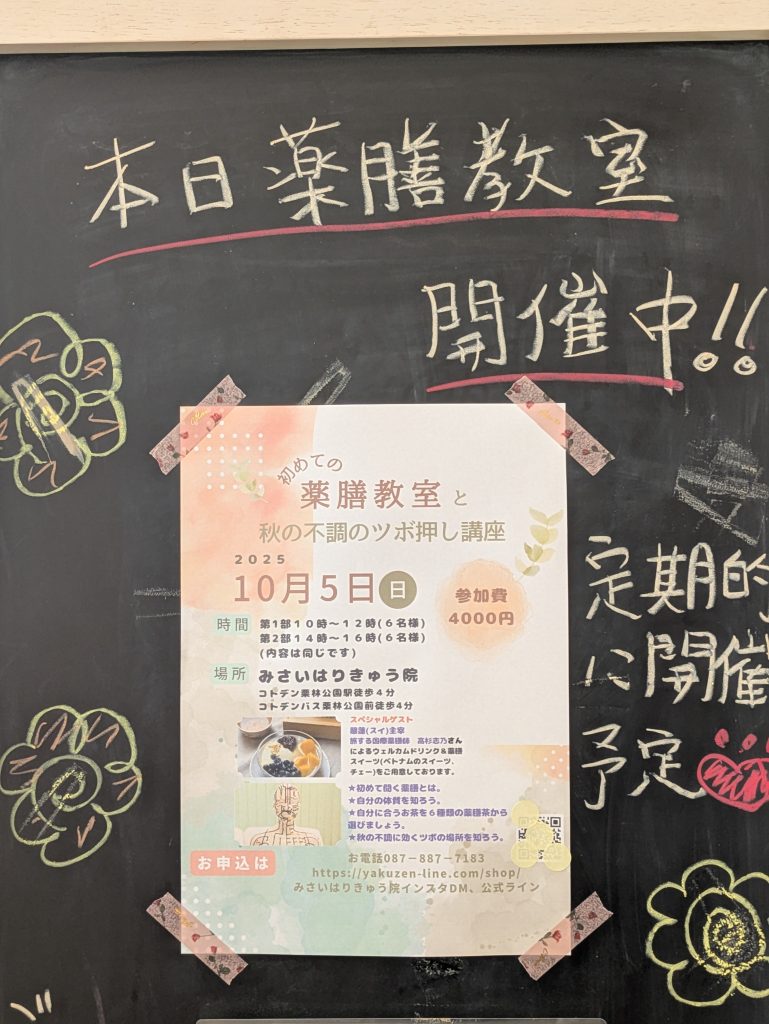 本日薬膳教室
開催中!!
初めての
薬膳教室と
秋の不調のツボ押し講座
2025
10月5日日
参加費
4000円
時間
第1部10時～12時(6名様)
第2部14時～16時(6名様)
(内容は同じです)
場所
みさいはりきゅう院
コトデン栗林公園駅徒歩4分
コトデンバス栗林公園前徒歩4分
スペシャルゲスト
(スイ)主宰
旅する国際薬膳師 高杉志乃さん
によるウェルカムドリンク＆薬膳
スイーツ(ベトナムのスイーツ、
チェー)をご用意しております。
★初めて聞く薬膳とは。
★自分の体質を知ろう。
★自分に合うお茶を6種類の薬膳茶から
選びましょう。
★秋の不調に効くツボの場所を知ろう。
お申込は
お電話087－887－7183
https://yakuzen-line.com/shop/
みさいはりきゅう院インスタDM、公式ライン
定期的
に開催
予定